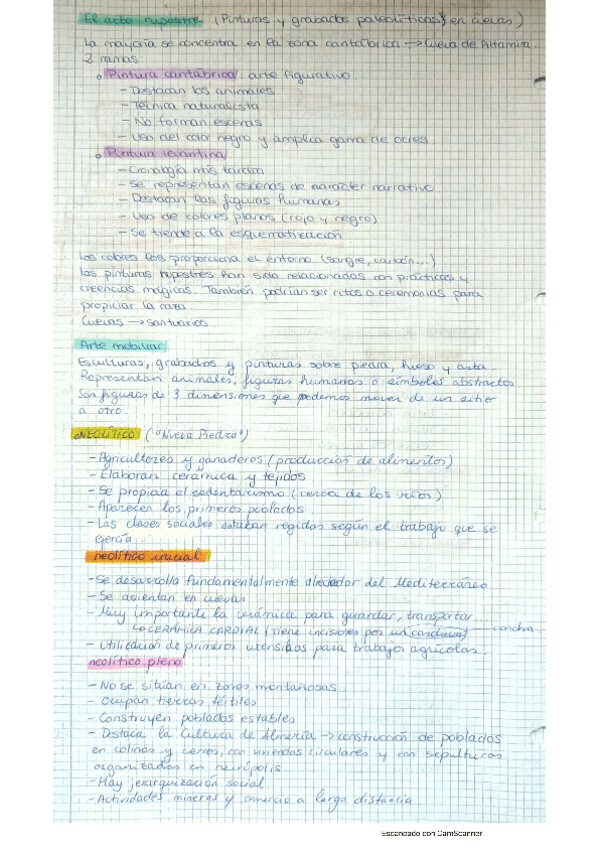 El arte rupestre (Pinturas y grabados paleolíticas en cuevas)
La mayoría se concentra en la zona cantábrica → Cueva de Altamira.
2 ramas:
Pintura cantábrica: arte figurativo.
- Destacan los animales
- Técnica naturalista
- No forman escenas
- Uso del color negro y amplia gama de ocres
Pintura levantina
- Cronología más tardía
- Se representan escenas de carácter narrativo.
- Destacan las figuras humanas
- Uso de colores planos (rojo y negro)
- Se tiende a la esquematización
Los colores los proporciona el entorno (sangre, carbón...)
Las pinturas rupestres han sido relacionados con prácticas y
creencias mágicas. También podrían ser ritos o ceremonias para
propiciar la caza.
Cuevas → santuarios
Arte mobiliar
Esculturas, grabados y pinturas sobre piedra, hueso y asta.
Representan animales, figuras humanas o símbolos abstractos
Son figuras de 3 dimensiones que podemos mover de un sitio
a otro
NEOLÍTICO ("Nueva Piedra")
- Agricultores y ganaderos (producción de alimentos)
- Elaboran cerámica y tejidos
- Se propicia el sedentarismo (cerca de los ríos)
- Aparecen los primeros poblados
- Las clases sociales estaban regidas según el trabajo que se
ejercía.
neolítico inicial
- Se desarrolla fundamentalmente alrededor del Mediterráneo
- Se asientan en cuevas
- Muy importante la cerámica para guardar, transportar...
↳ CERÁMICA CARDIAL (tiene incisiones por un cardium) — concha
- Utilización de primeros utensilios para trabajos agrícolas.
neolítico pleno
- No se sitúan en zonas montañosas
- Ocupan tierras fértiles
- Construyen poblados estables
- Destaca la Cultura de Almería → construcción de poblados
en colinas y cerros, con viviendas circulares y con sepulturas
organizadas en necrópolis.
- Hay jerarquización social
- Actividades mineras y comercio a larga distancia
Escaneado con CamScanner